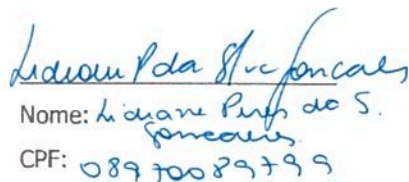 Lidiane P da Silva Goncales
Nome: Lidiane Pires da S.
Goncalves
CPF: 08970089799